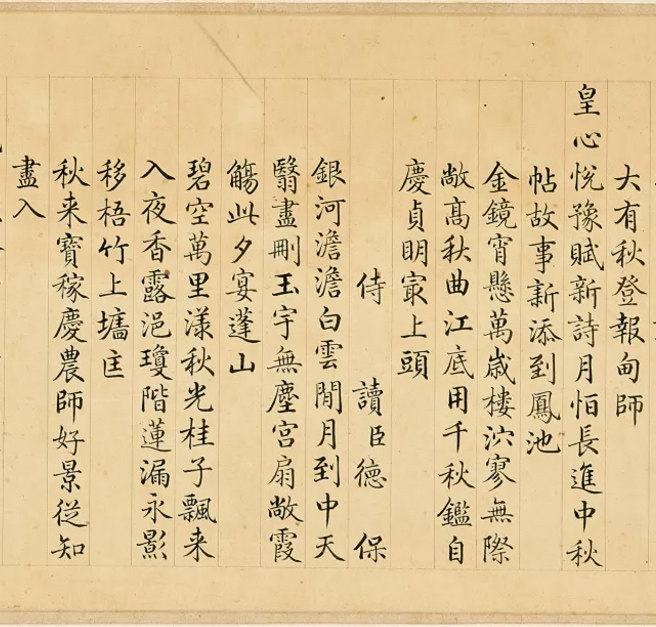 大有秋登報甸師
皇心悅豫賦新詩月怕長進中秋
帖故事新添到鳳池
金鏡宵懸萬嵗樓泬寥無際
敞髙秋曲江底用千秋鑑自
慶貞眀㝡上頭
侍讀臣德保
銀河澹澹白雲閒月到中天
翳盡刪玉宇無塵宮扇敞霞
觴此夕宴蓬山
碧空萬里漾秋光桂子飄来
入夜香露浥瓊階蓮漏永影
移梧竹上墻匡
秋来寶稼慶農師好景從知
盡入